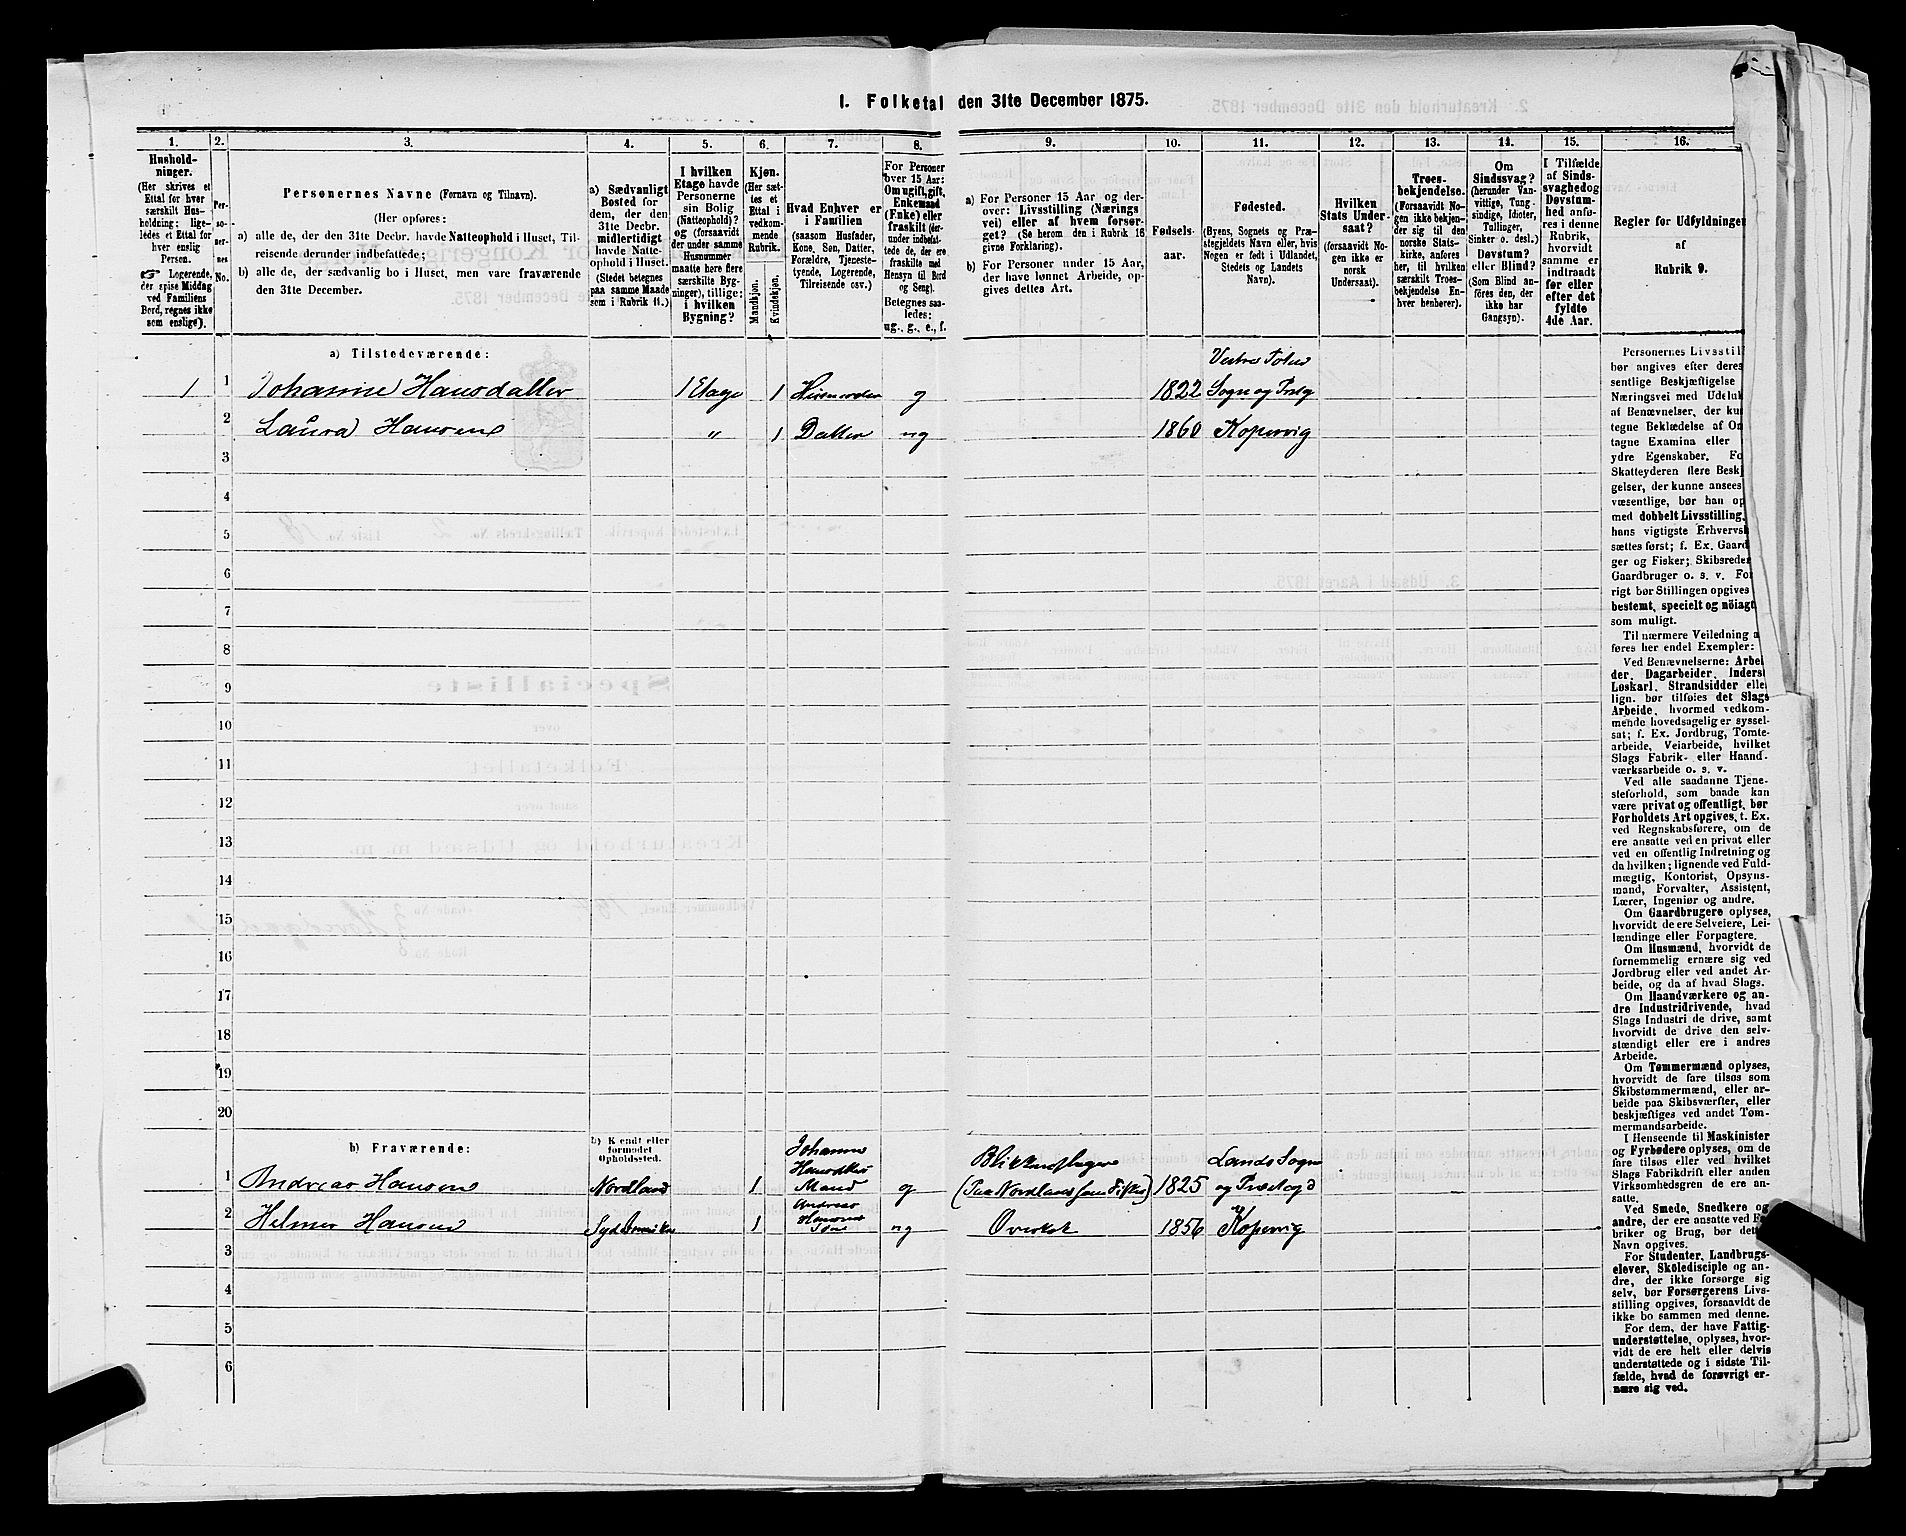 1. Folketal den 31te December 1875.
1. 2. 3. 4. 5. 6. 7. 8. 9. 10. 11. 12. 13. 14. 15. 16.
Hushold-
ninger.
(Her skrives et
Ettal for hver
særskilt Hus-
holdning; lige-
ledes et Ettal for
hver enslig
Person.
☞ Logerende,
der spise Middag
ved Familiens
Bord, regnes ikke
som enslige).
Per-
so-
ner-
nes
No.
Personernes Navne (Fornavn og Tilnavn).
(Her opføres:
a) alle de, der den 31te Decbr. havde Natteophold i Huset, Til-
reisende derunder indbefattede;
b) alle de, der sædvanlig bo i Huset, men vare fraværende
den 31te December.
a) Sædvanligt
Bosted for
dem, der den
31te Decbr.
midlertidigt
havde Natte-
ophold i Huset.
(Stedet betegnes
paa samme Maade
som i Rubrik 11.)
I hvilken
Etage havde
Personerne
sin Bolig
(Natteophold)?
og (forsaavidt
der under samme
Husnummer
maatte høre flere
særskilte Byg-
ninger), tillige:
i hvilken
Bygning?
Kjøn.
(Her sæt-
tes et
Ettal i
vedkom-
mende
Rubrik.
Mandskjøn.
Kvindekjøn.
Hvad Enhver er
i Familien
(saasom Husfader,
Kone, Søn, Datter,
Forældre, Tjeneste-
tyende, Logerende,
Tilreisende osv.)
For Personer
over 15 Aar:
Om ugift, gift,
Enkemand
(Enke) eller
fraskilt (der-
under indbefat-
tede de, der ere
fraskilte med
Hensyn til Bord
og Seng).
Betegnes saa-
ledes:
ug., g., e., f.
a) For Personer 15 Aar og der-
over: Livsstilling (Nærings
vei) eller af hvem forsør-
get? (Se herom den i Rubrik 16
givne Forklaring).
b) For Personer under 15 Aar,
der have lønnet Arbeide, op-
gives dettes Art.
Fødsels-
aar.
Fødested.
(Byens, Sognets og Præ-
stegjeldets Navn eller, hvis
Nogen er født i Udlandet,
Stedets og Landets
Navn).
Hvilken
Stats Under-
saat?
(forsaavidt No-
gen ikke er
norsk
Undersaat).
Troes-
bekjendelse.
(Forsaavidt No-
gen ikke bekjen-
der sig til den
norske Stats-
kirke, anføres
her, til hvilken
særskilt Troes-
bekjendelse En-
hver henhører).
Om
Sindssvag?
(herunder Van-
vittige, Tung-
sindige, Idioter,
Tullinger,
Sinker o. desl.)
Døvstum?
eller Blind?
(Som Blind an-
føres den, der
ikke har
Gangsyn).
I Tilfælde
af Sinds-
svaghed og
Døvstum-
hed anfø-
res i denne
Rubrik,
hvorvidt
samme er
indtraadt
før eller
efter det
fyldte
4de Aar.
Regler for Udfyldningen
af
Rubrik 9.
a) Tilstedeværende:
1 1 Johanne Hansdatter 1 Etage 1 Huusmoder g 1822 Vestre Toten
Sogn og Præg
2 Laura Hansen " 1 Datter ug 1860 Kopervig
3
4
5
6
7
8
9
10
11
12
13
14
15
16
17
18
19
20
b) Fraværende:
b) Kendt eller
formodet
Opholdssted.
1 Andreas Hansen Nordland 1 Johanne
Hansdatter
Mand g Blikkenslager
(Paa Nordland som Fisker) 1825 Lands Sogn
og Præstegd
2 Helmer Hansen Sydamerika 1 Andreas
Hansens
Søn ug 1856 Kopervig
3
4
5
6
Personernes Livsstil
bør angives efter deres
sentlige Beskjæftigelse
Næringsvei med Udeluk
af Benævnelser, der kun
tegne Beklædelse af Om
tagne Examina eller
ydre Egenskaber. Fo
Skatteyderen flere Besk
gelser, der kunne ansees
væsentlige, bør han op
med dobbelt Livsstilling,
hans vigtigste Erhvervs
sættes først; f. Ex. Gaard
ger og Fisker; Skibsreder
Gaardbruger o. s. v. For
rigt bør Stillingen opgives
bestemt, specielt og nöiagt
som muligt.
Til nærmere Veiledning a
føres her endel Exempler:
Ved Benævnelserne: Arbei
der, Dagarbeider, Inders
Løskarl, Strandsidder elle
lign. bør tilføies det Slags
Arbeide, hvormed vedkom-
mende hovedsagelig er syssel-
sat; f. Ex. Jordbrug, Tomte-
arbeide, Veiarbeide, hvilket
Slags Fabrik- eller Haand-
værksarbeide o. s. v.
Ved alle saadanne Tjene-
steforhold, som baade kan
være privat og offentligt, bør
Forholdets Art opgives, t. Ex.
ved Regnskabsførere, om de
ere ansatte ved en privat eller
ved en offentlig Indretning og
da hvilken; lignende ved Fuld-
mægtig, Kontorist, Opsyns-
mand, Forvalter, Assistent,
Lærer, Ingeniør og andre.
Om Gaardbrugere oplyses,
hvorvidt de ere Selveiere, Lei-
lændinge eller Forpagtere.
Om Husmænd, hvorvidt de
fornemmelig ernære sig ved
Jordbrug eller ved andet Ar-
beide, og da af hvad Slags.
Om Haandværkere og an-
dre Industridrivende, hvad
Slags Industri de drive, samt
hvorvidt de drive den selv-
stændigt eller ere i andres
Arbeide.
Om Tømmermænd oplyses,
hvorvidt de fare tilsøs som
Skibstømmermænd, eller ar-
beide paa Skibsværfter, eller
beskjæftiges ved andet Tøm-
mermandsarbeide.
I Henseende til Maskinister
og Fyrbødere oplyses, om de
fare tilsøs eller ved hvilket
Slags Fabrikdrift eller anden
Virksomhedsgren de ere an-
satte.
Ved Smede, Snedkere og
andre, der ere ansatte ved Fa-
briker og Brug, bør dettes
Navn opgives.
For Studenter, Landbrugs-
elever, Skoledisciple og an-
dre, der ikke forsørge sig
selv, bør Forsørgerens Livs-
stilling opgives, forsaavidt de
ikke bo sammen med denne.
For dem, der have Fattig-
understøttelse, oplyses, hvor-
vidt de ere helt eller delvis
understøttede og i sidste Til-
fælde, hvad de forøvrigt er-
nære sig ved.